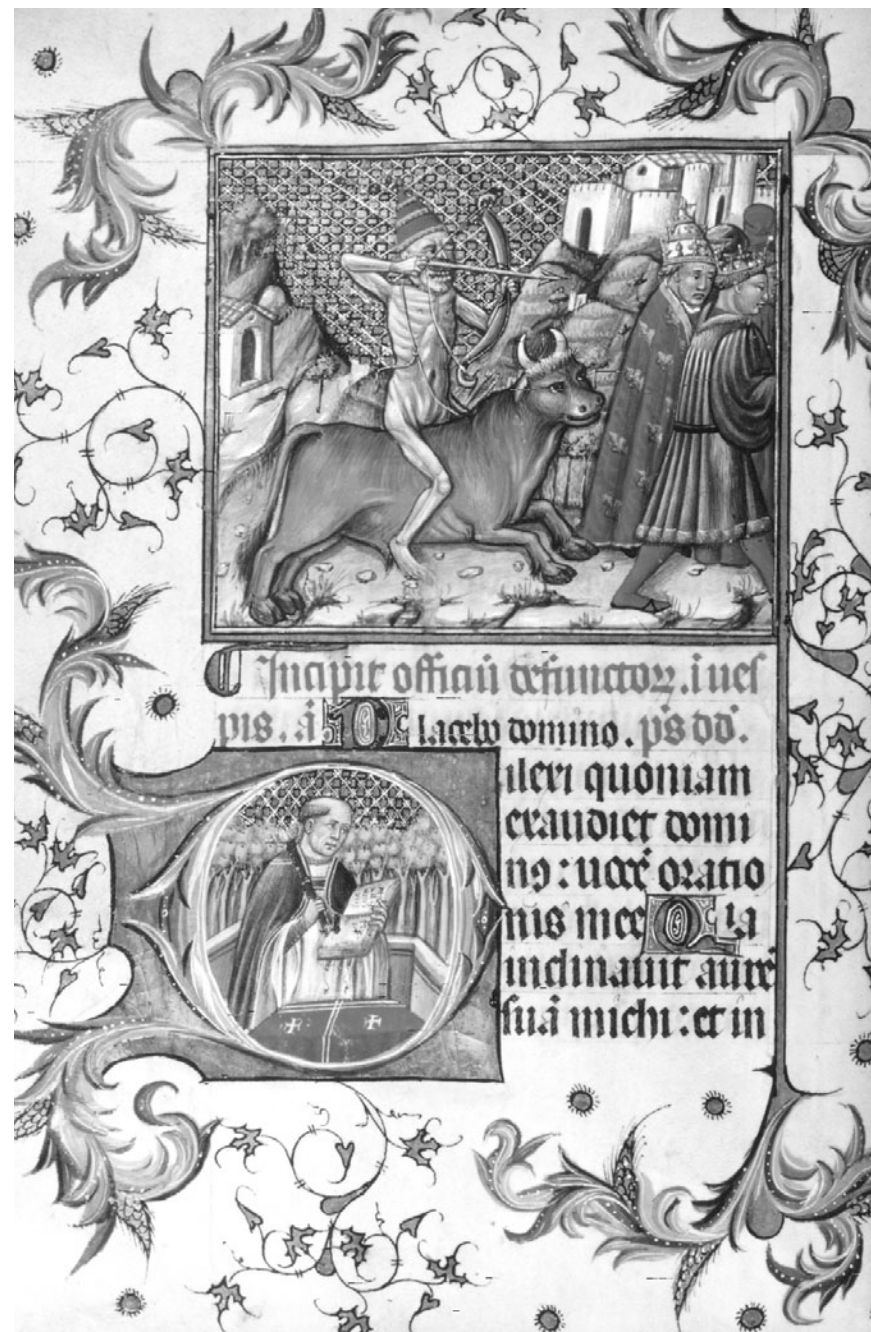 Incipit officiū defunctoꝝ. ī ues
pis. ā Placebo domino. p̄s dd̄.
Dilexi quoniam
exaudiet domi
nꝰ: uocē oratio
nis mee Quia
inclinauit aurē
suā michi: et in